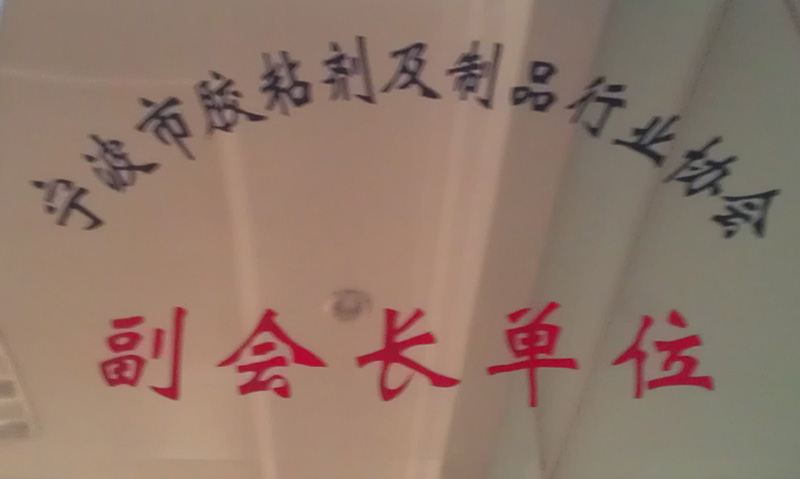 宁波市胶粘剂及制品行业协会
副会长单位